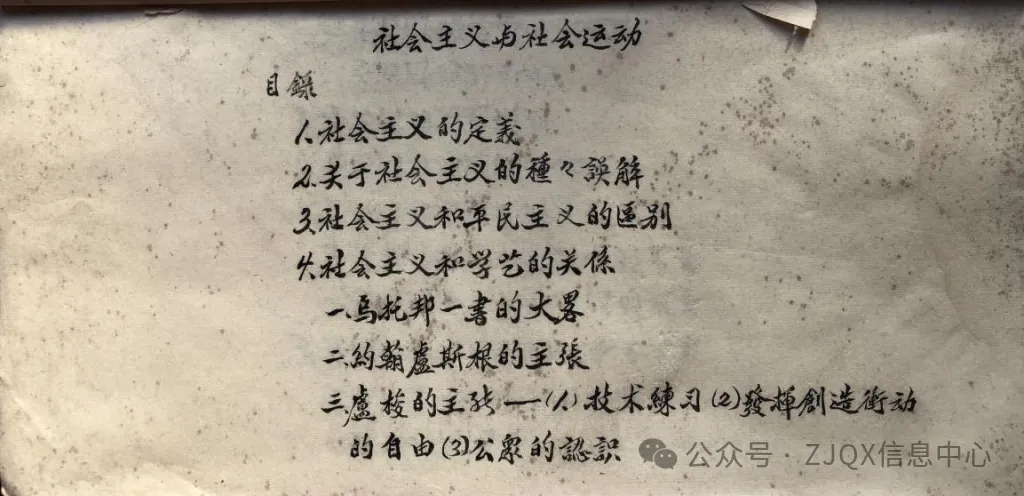 社会主义与社会运动
目錄
1.社会主义的定義
2.关于社会主义的種々誤解
3.社会主义和平民主义的區别
4.社会主义和学艺的关係
一.烏托邦一書的大畧
二.約翰盧斯根的主張
三.盧梭的主張——(1)技术練习(2)發揮創造衝动
的自由(3)公眾的認识
公众号·ZJQX信息中心